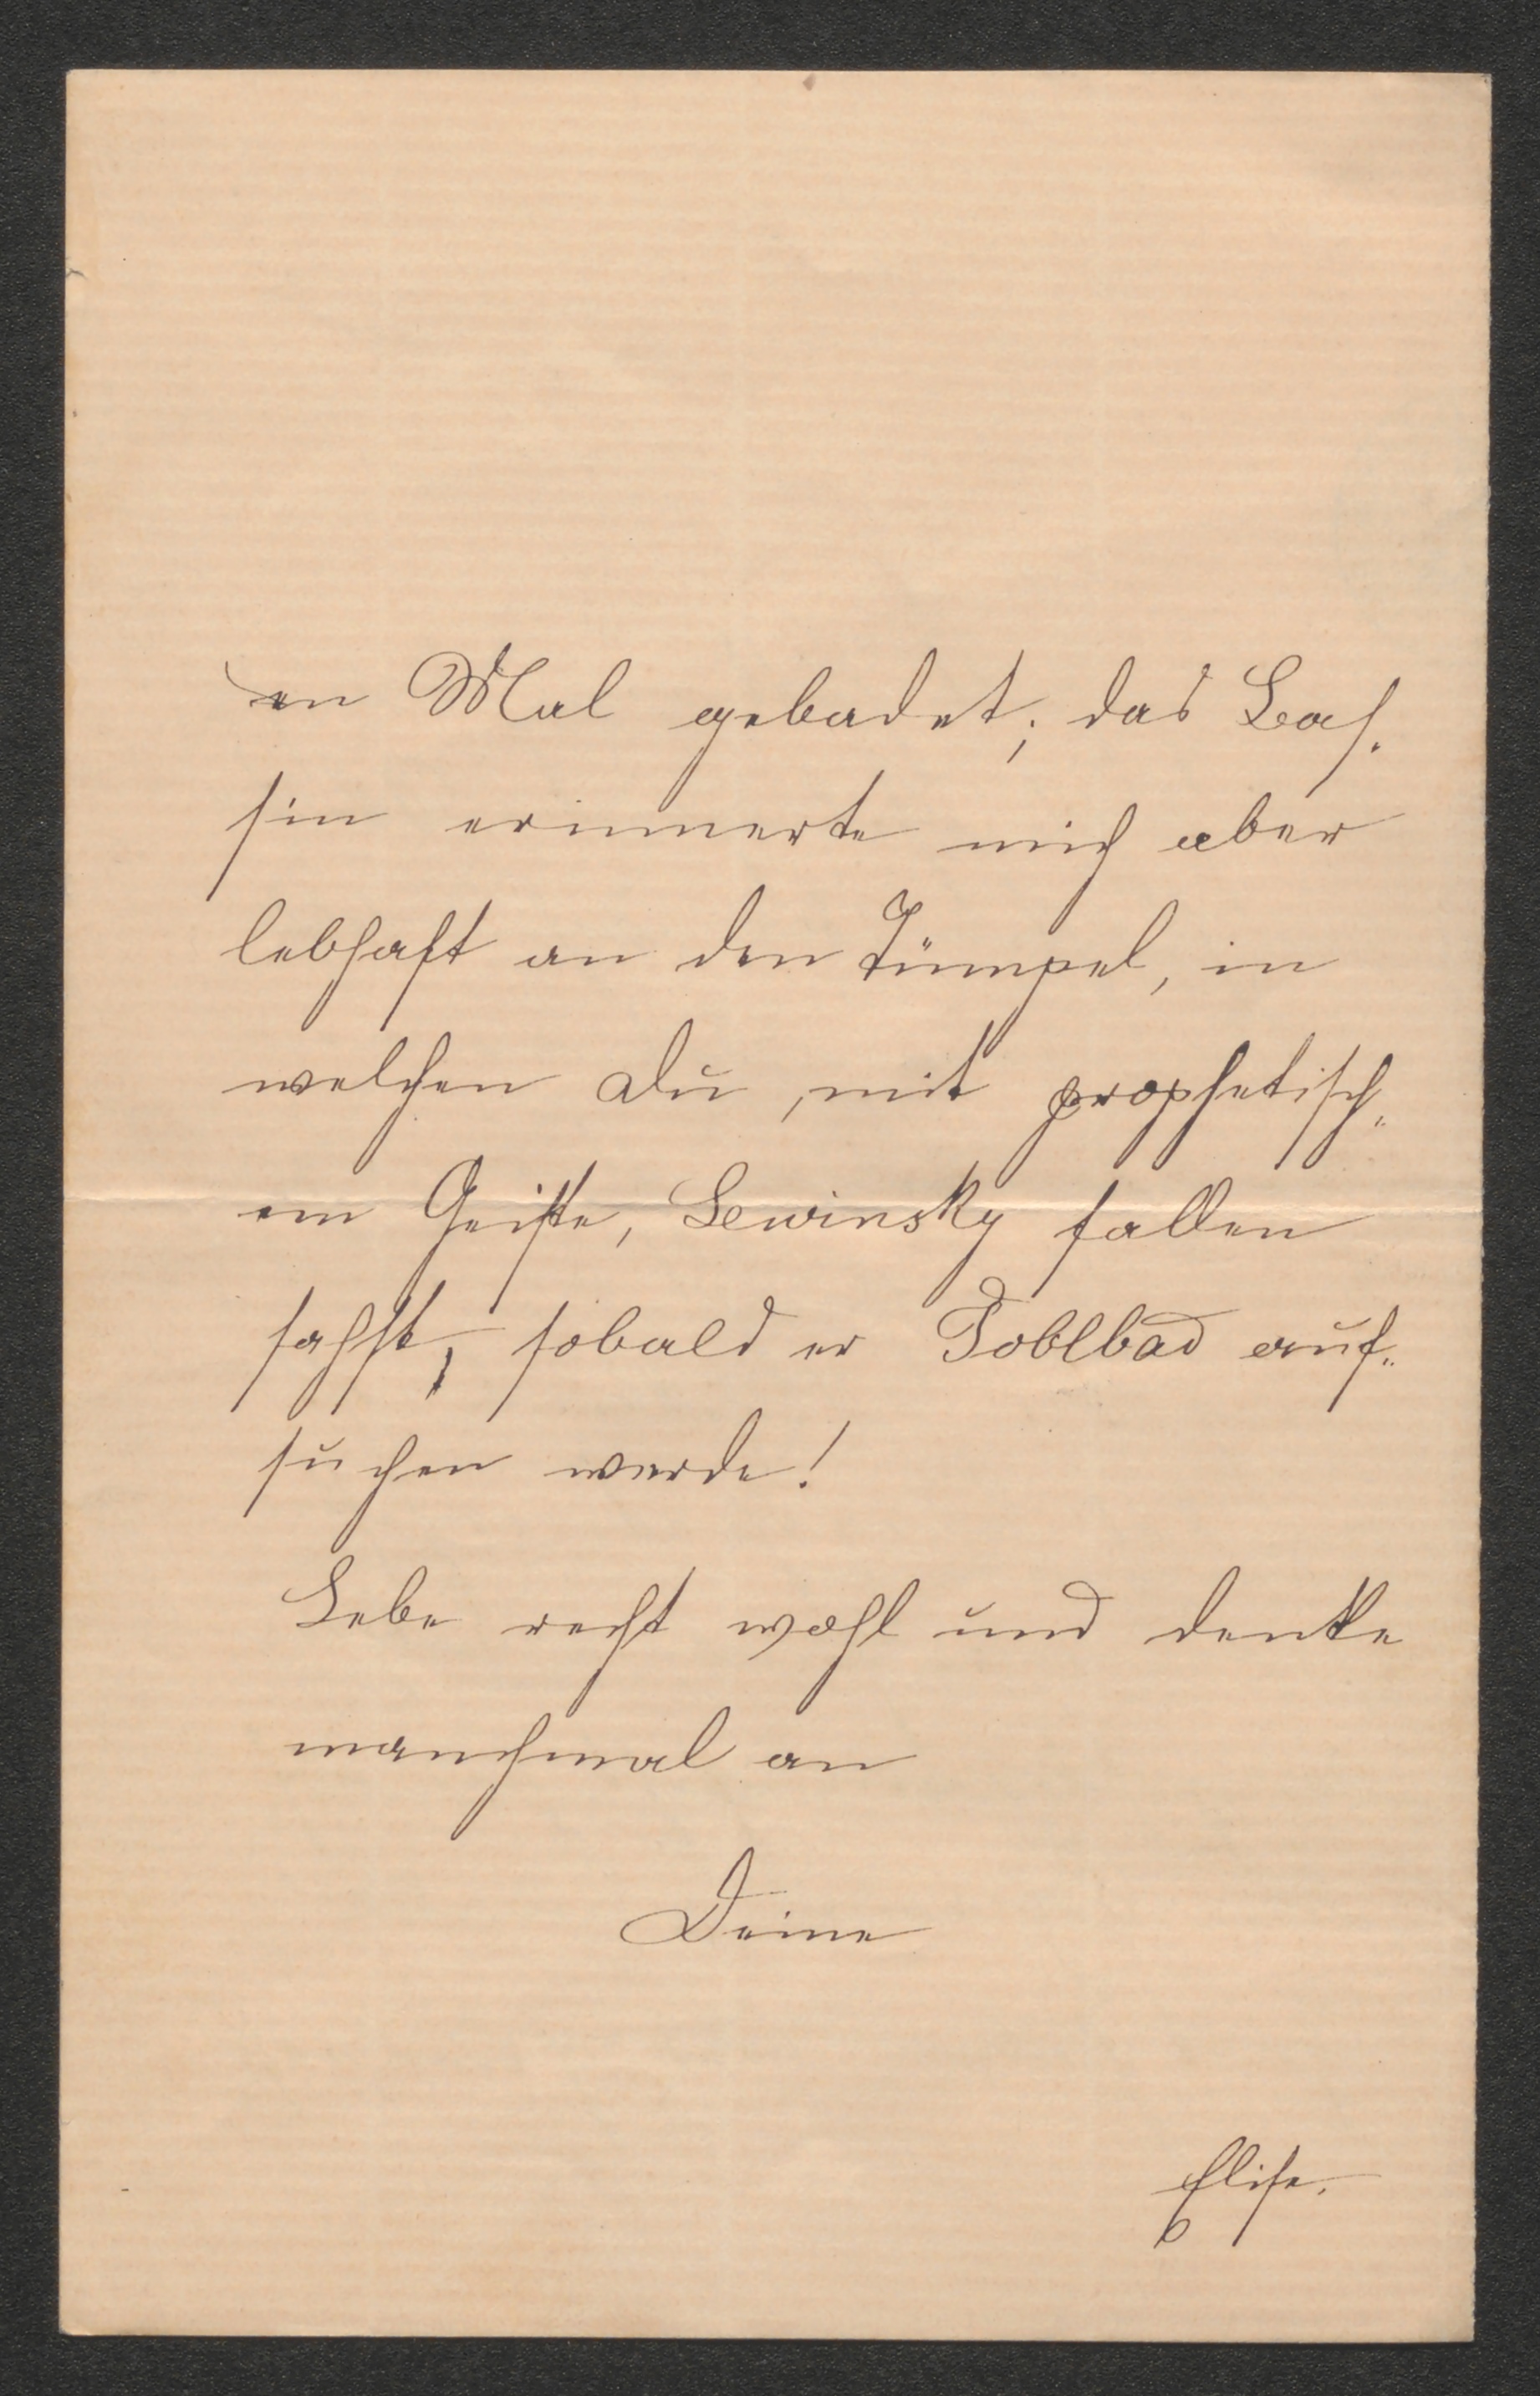 en Mal gebadet; das Bas-
sin erinnerte mich aber
lebhaft an den Tümpel, in
welchen Du, mit prophetisch-
em Geiste, Lewinsky fallen
sahst, sobald er Toblbad auf-
suchen werde!
Lebe recht wohl und denke
manchmal an
Deine
Elise.